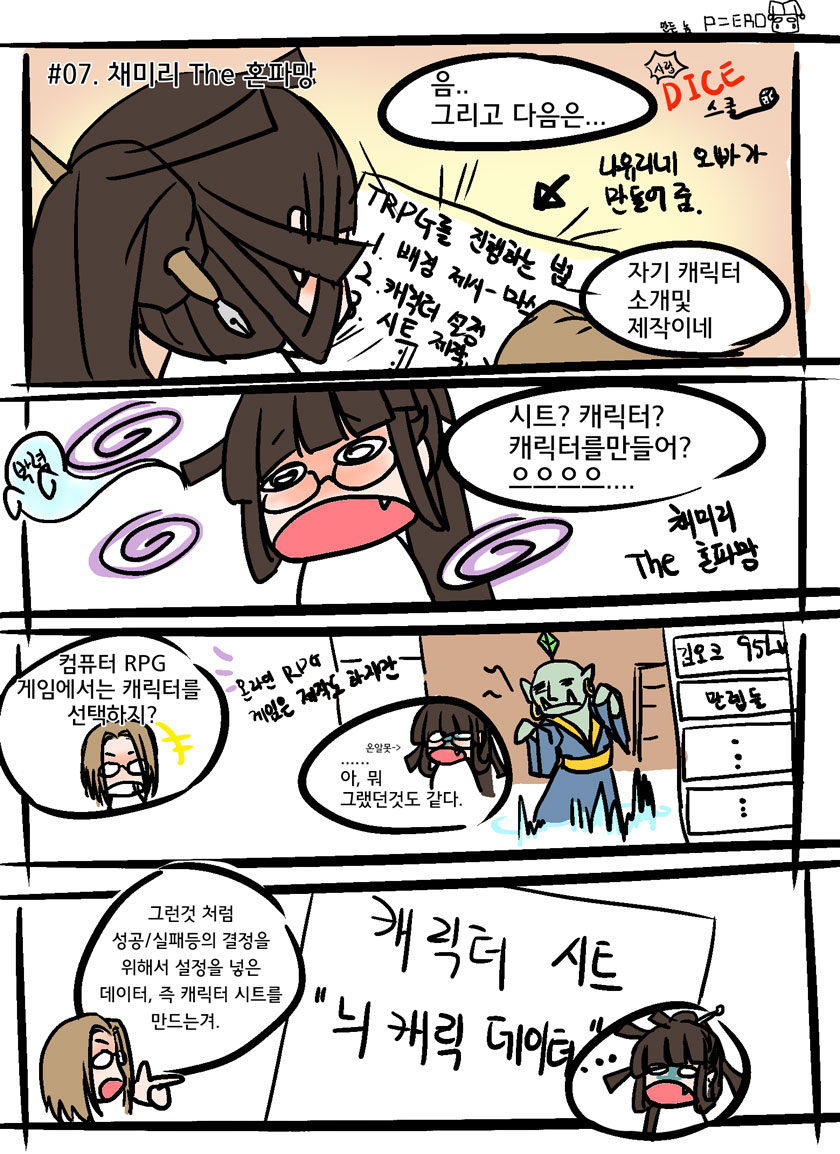 만든 놈 P=ERO
#07. 채미리 The 혼파망
음..
그리고 다음은...
사립
DICE
스쿨
나유리네 오빠가
만들어 줌.
TRPG를 진행하는 법
1. 배경 제시-마스
2. 캐릭터 설정
3. 시트 제작
자기 캐릭터
소개및
제작이네
시트? 캐릭터?
캐릭터를만들어?
으으으으....
채미리
The 혼파망
컴퓨터 RPG
게임에서는 캐릭터를
선택하지?
온라인 RPG
게임은 제작도 하지만
온알못->
......
아, 뭐
그랬던것도 같다.
김오크 95Lv
만렙들
그런것 처럼
성공/실패등의 결정을
위해서 설정을 넣은
데이터, 즉 캐릭터 시트를
만드는겨.
캐릭터 시트
"늬 캐릭 데이터"...